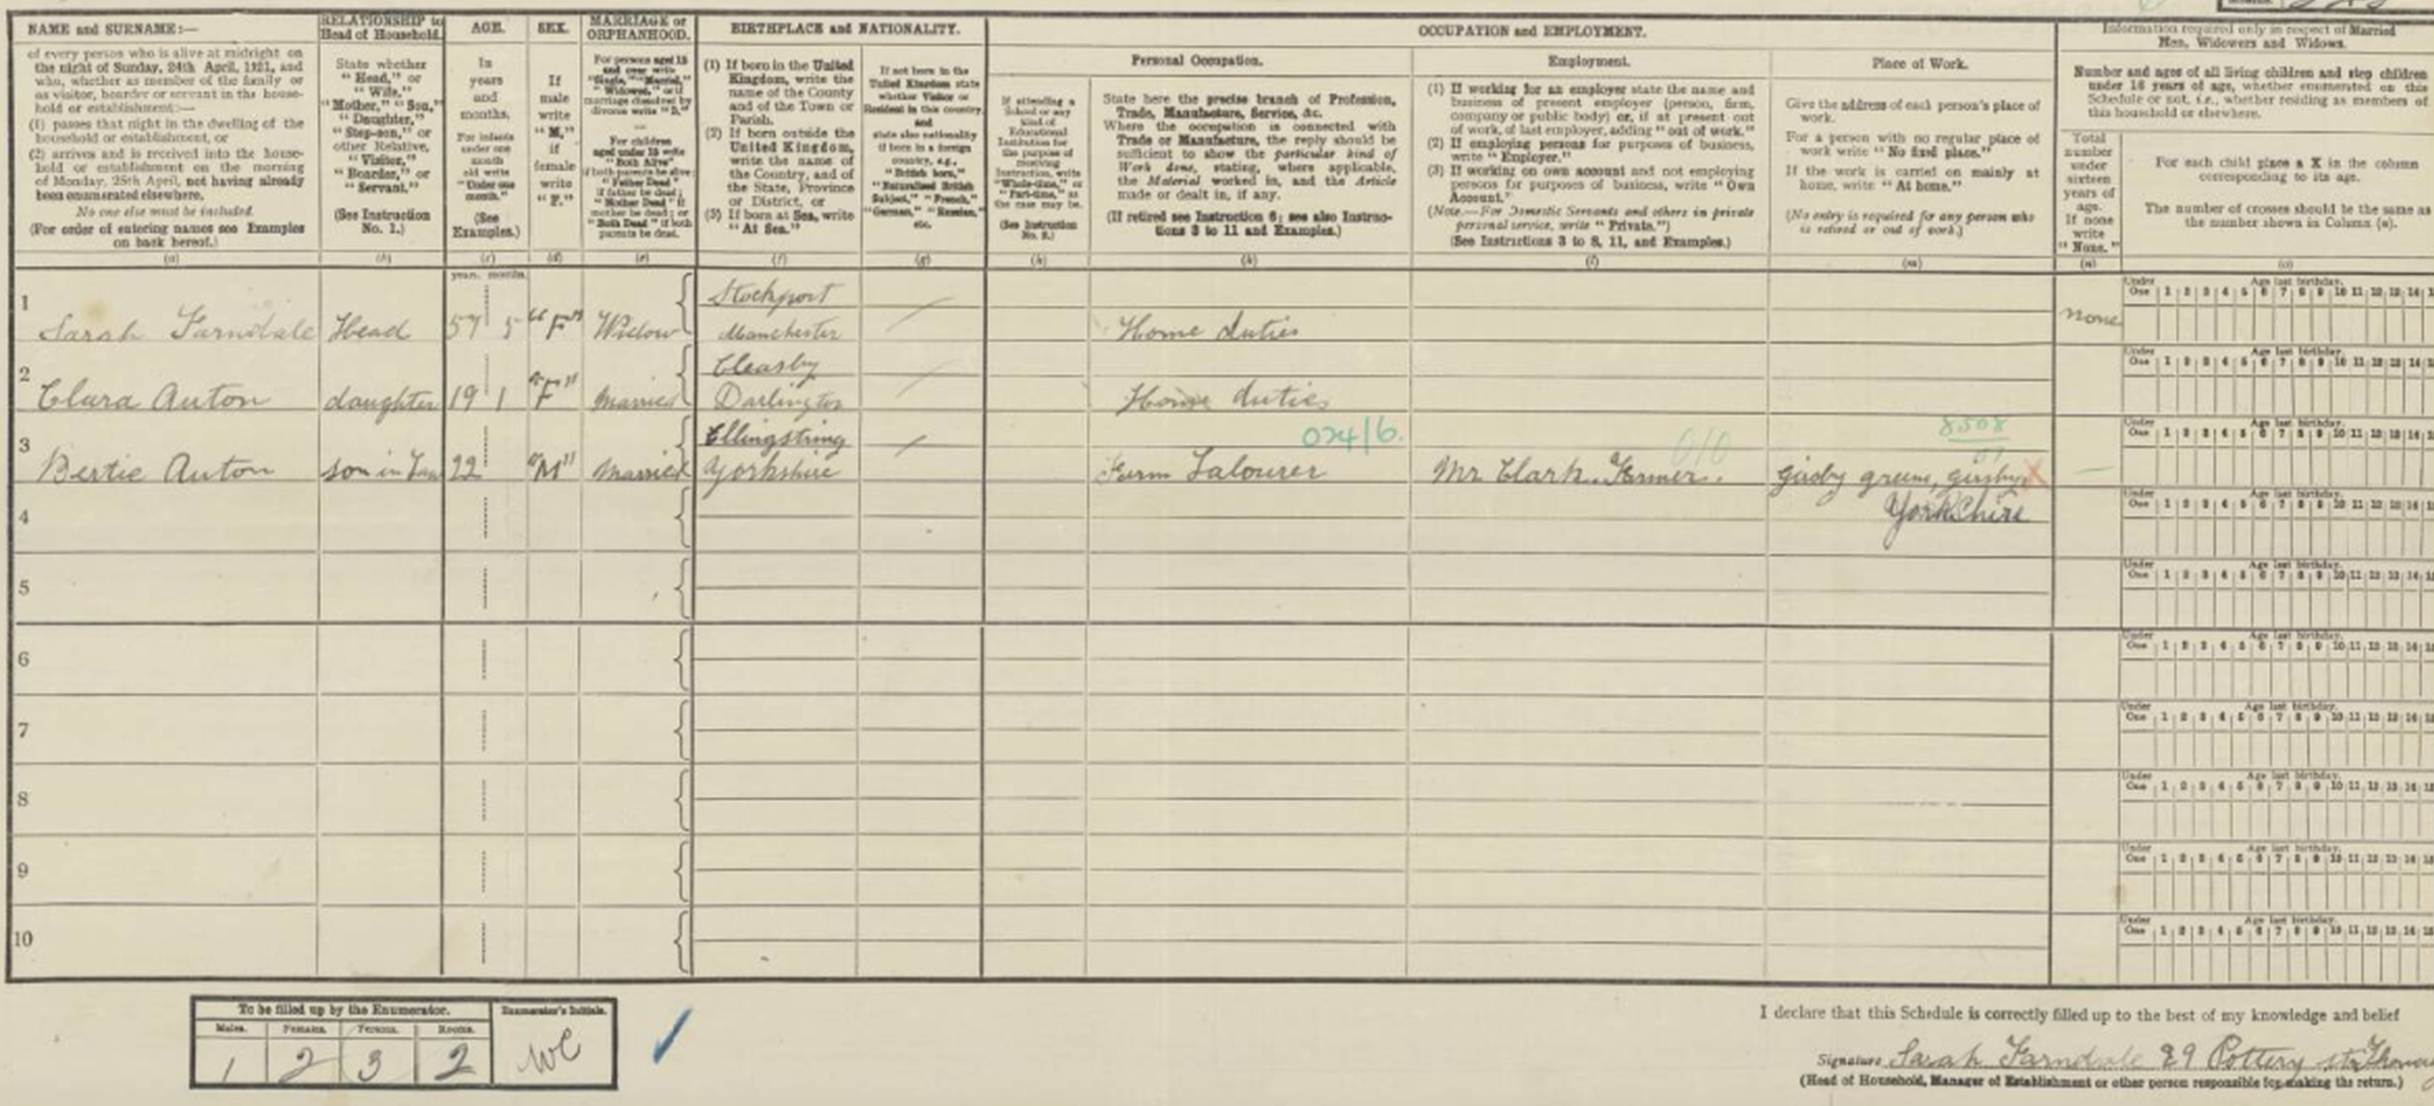 NAME and SURNAME:—
of every person who is alive at midnight on
the night of Sunday, 24th April, 1921, and
who, whether as member of the family or
as visitor, boarder or servant in the house-
hold or establishment:—
(1) passes that night in the dwelling of the
household or establishment, or
(2) arrives and is received into the house-
hold or establishment on the morning
of Monday, 25th April, not having already
been enumerated elsewhere.
No one else must be included.
(For order of entering names see Examples
on back hereof.)
(a)
RELATIONSHIP to
Head of Household.
State whether
"Head," or
"Wife,"
"Mother," "Son,"
"Daughter,"
"Step-son," or
other Relative,
"Visitor,"
"Boarder," or
"Servant."
(See Instruction
No. 1.)
(b)
AGE.
In
years
and
months.
For infants
under one
month
old write
"Under one
month."
(See
Examples.)
(c)
SEX.
If
male
write
"M,"
if
female
write
"F."
(d)
MARRIAGE or
ORPHANHOOD.
For persons aged 15
and over write
"Single," "Married,"
"Widowed," or if
marriage dissolved by
divorce write "D."
For children
aged under 15 write
"Both Alive"
if both parents be alive;
"Father Dead"
if father be dead;
"Mother Dead" if
mother be dead; or
"Both Dead" if both
parents be dead.
(e)
BIRTHPLACE and NATIONALITY.
(1) If born in the United
Kingdom, write the
name of the County
and of the Town or
Parish.
(2) If born outside the
United Kingdom,
write the name of
the Country, and of
the State, Province
or District, or
(3) If born at Sea, write
"At Sea."
(f)
If not born in the
United Kingdom state
whether Visitor or
Resident in this country,
and
state also nationality
if born in a foreign
country, e.g.,
"British born,"
"Naturalised British
Subject," "French,"
"German," "Russian,"
etc.
(g)
OCCUPATION and EMPLOYMENT.
If attending a
School or any
kind of
Educational
Institution for
the purpose of
receiving
Instruction, write
"Whole-time," or
"Part-time," as
the case may be.
(See Instruction
No. 2.)
(h)
Personal Occupation.
State here the precise branch of Profession,
Trade, Manufacture, Service, &c.
Where the occupation is connected with
Trade or Manufacture, the reply should be
sufficient to show the particular kind of
Work done, stating, where applicable,
the Material worked in, and the Article
made or dealt in, if any.
(If retired see Instruction 6; see also Instruc-
tions 3 to 11 and Examples.)
(k)
Employment.
(1) If working for an employer state the name and
business of present employer (person, firm,
company or public body) or, if at present out
of work, of last employer, adding "out of work."
(2) If employing persons for purposes of business,
write "Employer."
(3) If working on own account and not employing
persons for purposes of business, write "Own
Account."
(Note.—For Domestic Servants and others in private
personal service, write "Private.")
(See Instructions 3 to 8, 11, and Examples.)
(l)
Place of Work.
Give the address of each person's place of
work.
For a person with no regular place of
work write "No fixed place."
If the work is carried on mainly at
home, write "At home."
(No entry is required for any person who
is retired or out of work.)
(m)
Information required only in respect of Married
Men, Widowers and Widows.
Number and ages of all living children and step children
under 16 years of age, whether enumerated on this
Schedule or not, i.e., whether residing as members of
this household or elsewhere.
Total
number
under
sixteen
years of
age.
If none
write
"None."
(n)
For each child place a X in the column
corresponding to its age.
The number of crosses should be the same as
the number shown in Column (n).
(o)
years. months.
1 Sarah Farndale Head 57 5 "F" Widow Stockport Manchester Home duties none
2 Clara Auton daughter 19 1 "F" Married Cleasby Darlington Home duties
3 Bertie Auton son in Law 22 "M" Married Ellingstring Yorkshire Farm Labourer Mr Clark. Farmer. Girsby green, girsby,
Yorkshire
024/6. 010 8508
4
5
6
7
8
9
10
Under One 1 2 3 4 5 6 7 8 9 10 11 12 13 14
Age last birthday.
To be filled up by the Enumerator.
Males. Females. Persons. Rooms.
1 2 3 2
Enumerator's Initials.
WC
I declare that this Schedule is correctly filled up to the best of my knowledge and belief
Signature Sarah Farndale 29 Pottery
(Head of Household, Manager of Establishment or other person responsible for making the return.)